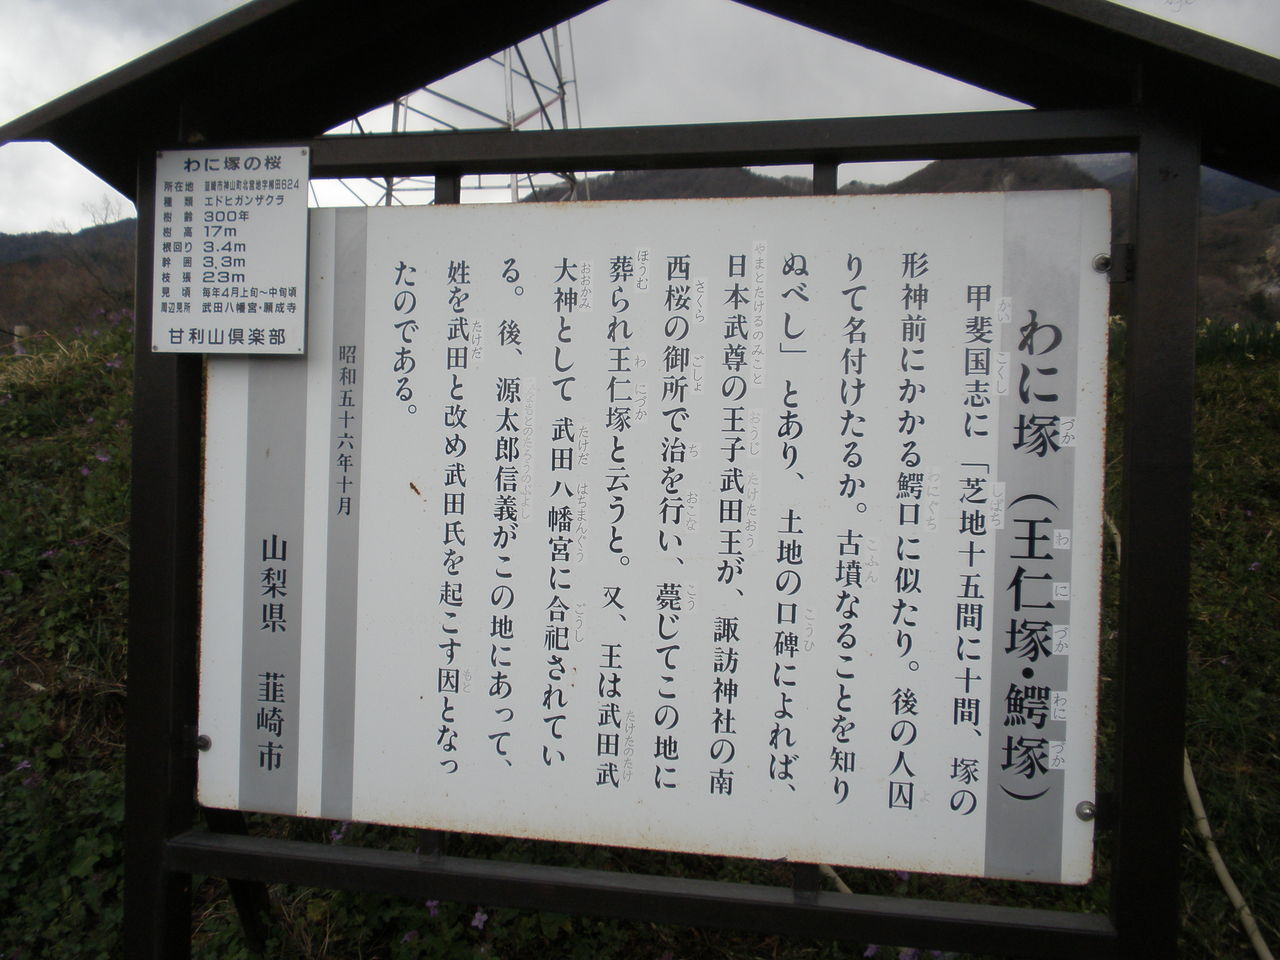 わに塚（王仁塚・鰐塚）
甲斐国志に「芝地十五間に十間、塚の
形神前にかかる鰐口に似たり。後の人囚
りて名付けたるか。古墳なることを知り
ぬべし」とあり、土地の口碑によれば、
日本武尊の王子武田王が、諏訪神社の南
西桜の御所で治を行い、薨じてこの地に
葬られ王仁塚と云うと。又、王は武田武
大神として 武田八幡宮に合祀されてい
る。後、源太郎信義がこの地にあって、
姓を武田と改め武田氏を起こす因となっ
たのである。
昭和五十六年十月
山梨県 韮崎市
わに塚の桜
所在地 韮崎市神山町北宮地字柳田624
種類 エドヒガンザクラ
樹齢 300年
樹高 17m
根回り 3.4m
幹囲 3.3m
枝張 23m
見頃 毎年4月上旬～中旬頃
周辺見所 武田八幡宮・願成寺
甘利山倶楽部